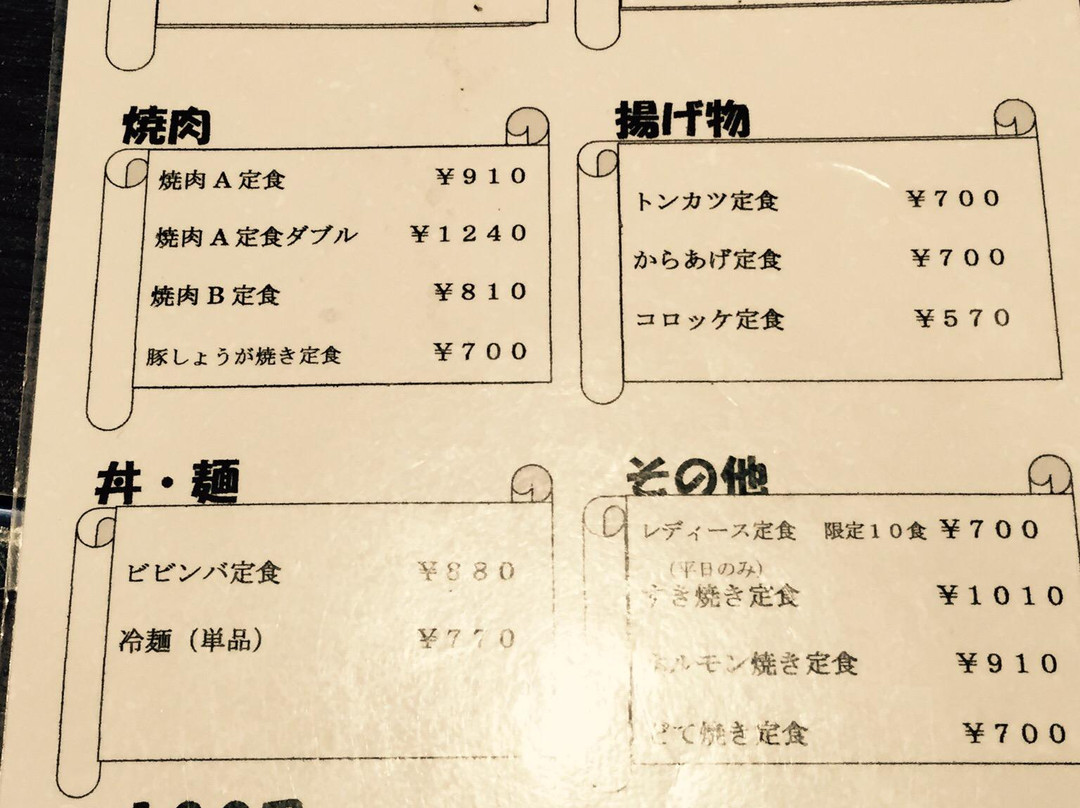 焼肉
焼肉A定食 ￥910
焼肉A定食ダブル ￥1240
焼肉B定食 ￥810
豚しょうが焼き定食 ￥700
揚げ物
トンカツ定食 ￥700
からあげ定食 ￥700
コロッケ定食 ￥570
丼・麺
ビビンバ定食 ￥880
冷麺（単品） ￥770
その他
レディース定食 限定10食 ￥700
（平日のみ）
すき焼き定食 ￥1010
ホルモン焼き定食 ￥910
どて焼き定食 ￥700